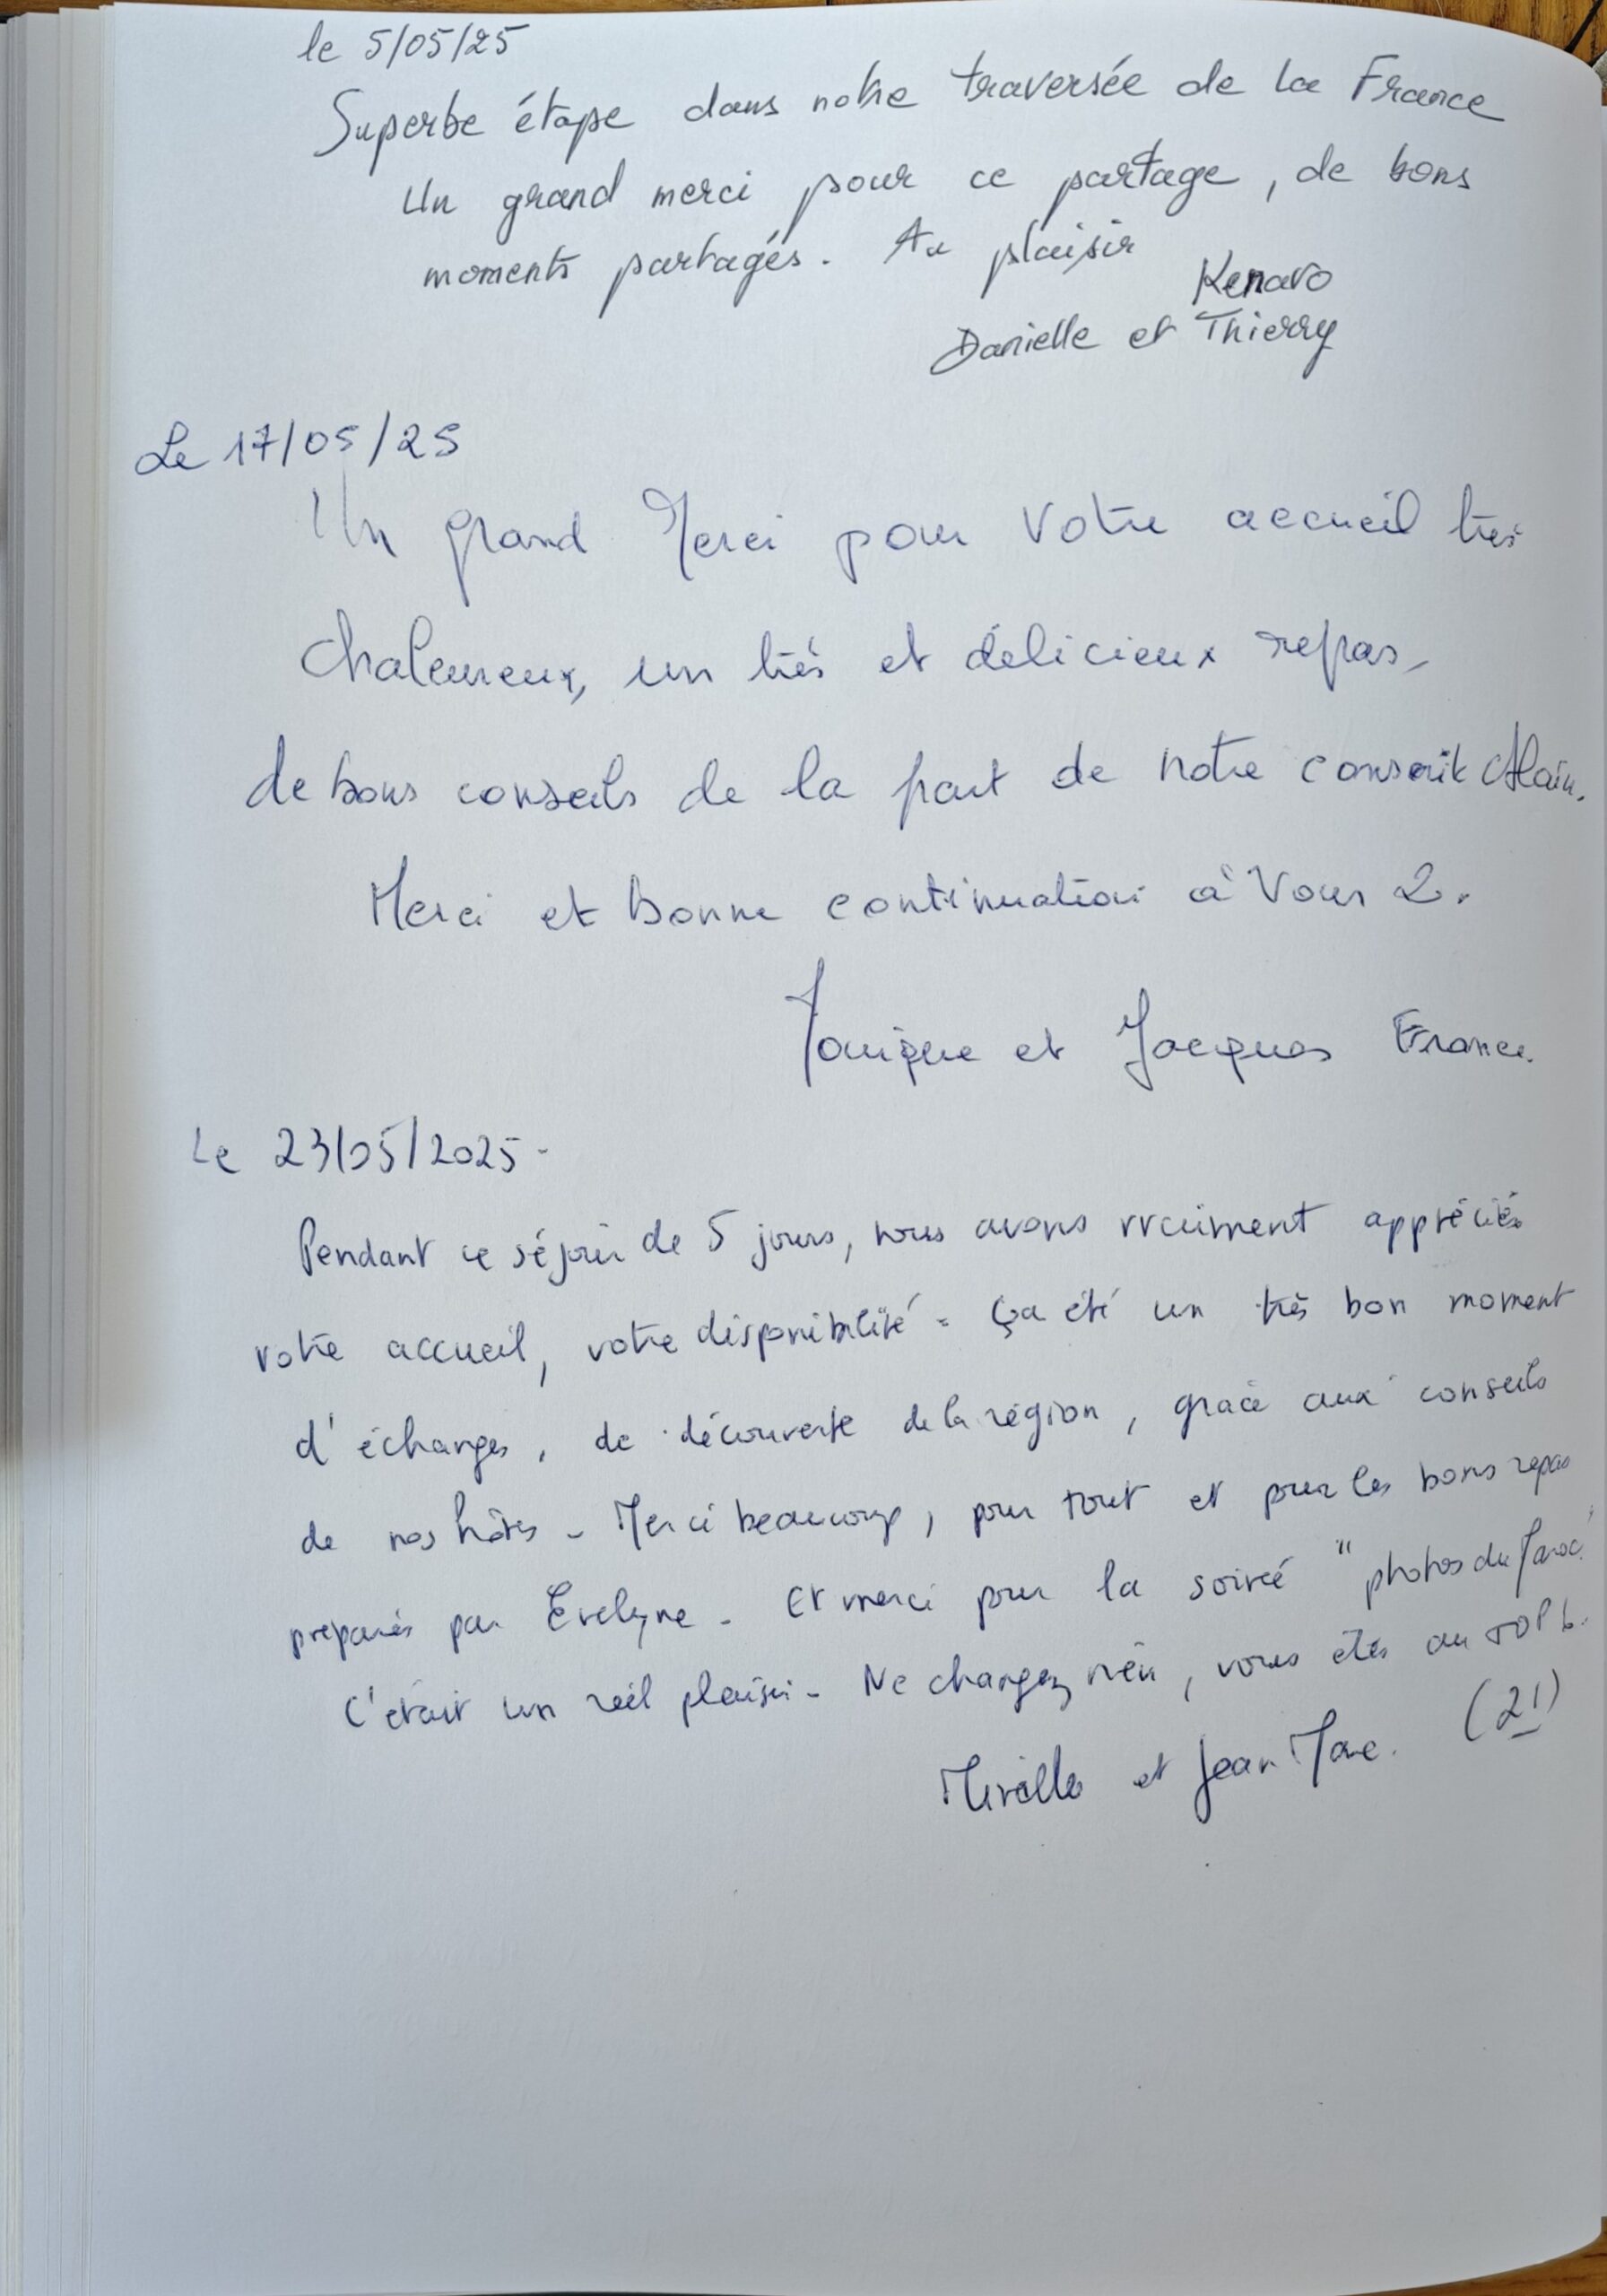 le 5/05/25
Superbe étape dans notre traversée de la France
Un grand merci pour ce partage, de bons
moments partagés. Au plaisir
Kenavo
Danielle et Thierry
Le 17/05/25
Un grand Merci pour Votre accueil très
chaleureux, un très et délicieux repas,
de bons conseils de la part de notre conscrit Alain.
Merci et bonne continuation à Vous 2.
Monique et Jacques France.
Le 23/05/2025-
Pendant ce séjour de 5 jours, nous avons vraiment appréciés
votre accueil, votre disponibilité - ça été un très bon moment
d'échanges, de découverte de la région, grace aux conseils
de nos hôtes - Merci beaucoup, pour tout et pour les bons repas
préparés par Evelyne - Et merci pour la soirée "photos du Maroc"
C'était un réel plaisir - Ne changez rien, vous êtes au TOP
Mireille et Jean Marc. (21)